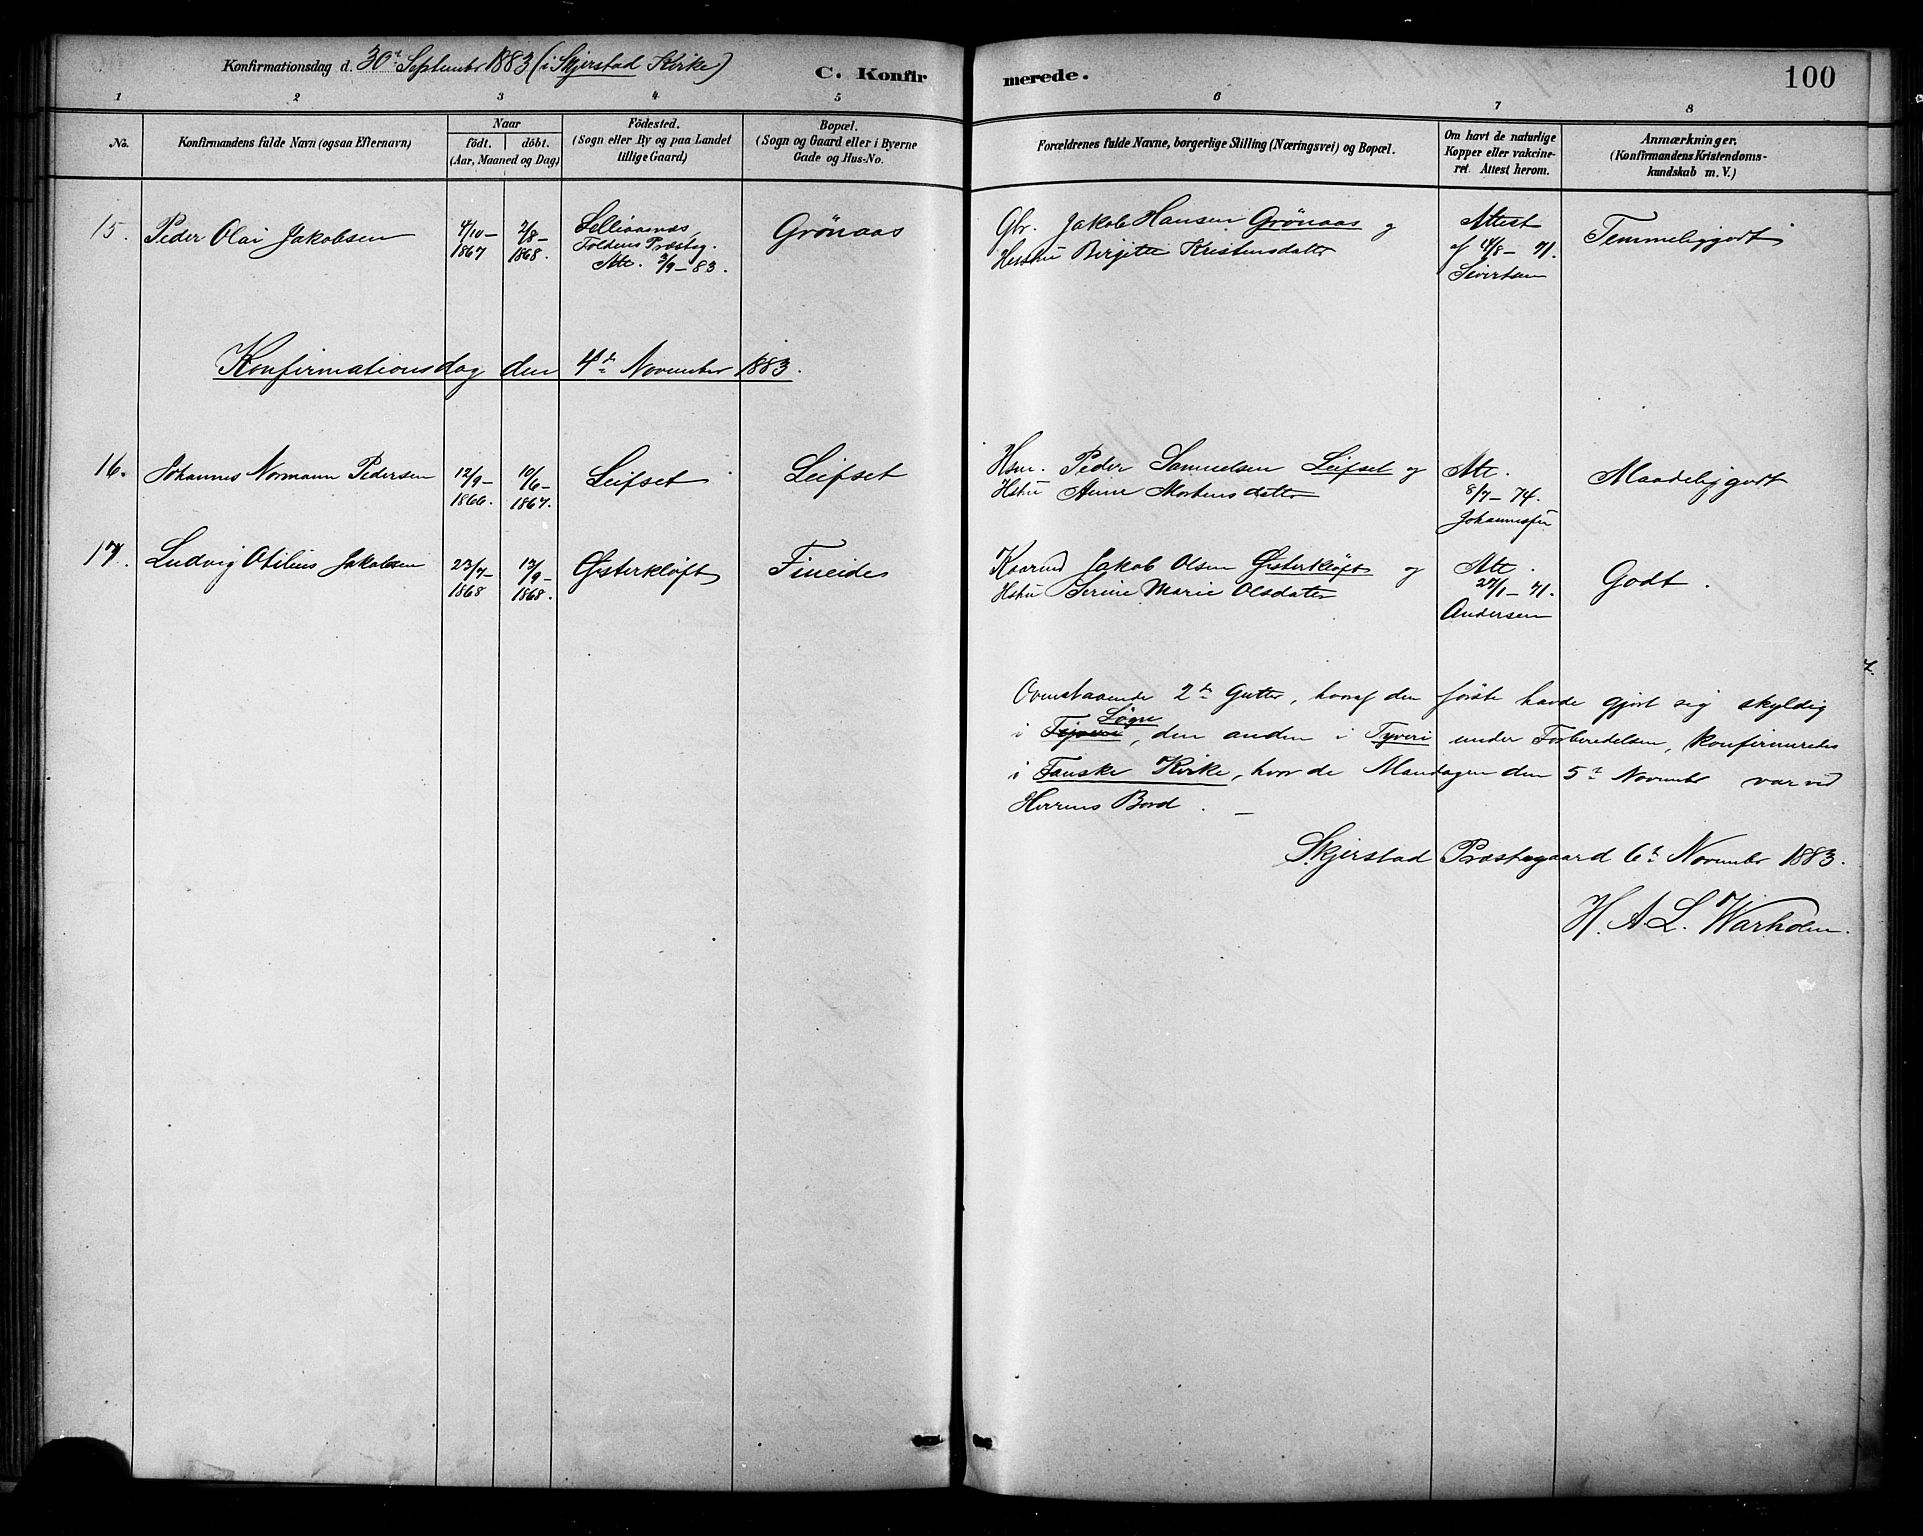 Konfirmationsdag d. 30t September 1883 (i Skjerstad Kirke)
C. Konfirmerede.
100
1 2 3 4 5 6 7 8
No.
Konfirmandens fulde Navn (ogsaa Efternavn)
Naar
födt. döbt.
(Aar, Maaned og Dag)
Födested.
(Sogn eller By og paa Landet
tillige Gaard)
Bopæl.
(Sogn og Gaard eller i Byerne
Gade og Hus-No.
Forældrenes fulde Navne, borgerlige Stilling (Næringsvei) og Bopæl.
Om havt de naturlige
Kopper eller vakcine-
ret. Attest herom.
Anmærkninger.
(Konfirmandens Kristendoms-
kundskab m. V.)
15. Peder Olai Jakobsen
4/10-
1867
2/8-
1868.
Foldens Præsteg.
Att. 3/9-83.
Grönaas
Gbr. Jakob Hansen Grönaas og
Hustru Birgitte Kristensdatter
Attest
af 4/8-71.
Sivertsen
Temmeliggodt
Konfirmationsdag den 4de November 1883.
16. Johannes Normann Pedersen
12/9-
1866.
10/6-
1867.
Leifset
Leifset
Hsm. Peder Samuelsen Leifset og
Hstru Anne Mortensdatter
Att.
8/7-74.
Maadeliggodt
17. Ludvig Otilius Jakobsen
23/7-
1868
13/9-
1868.
Østerkløft
Fineide
Jakob Olsen Østerkløft og
Hstru Serine Marie Olsdatter
Att.
27/1-71.
Andersen
Godt.
Ovenstaaende 2de Gutter, hvoraf den förste havde gjort sig skyldig
Løgn
i Tyveri, den anden i Tyveri under Forberedelsen, konfirmeredes
i Fauske Kirke, hvor de Mandagen den 5t November var ved
Herrens Bord. —
Skjerstad Præstegaard 6t November 1883.
H. A. L. Warholm.